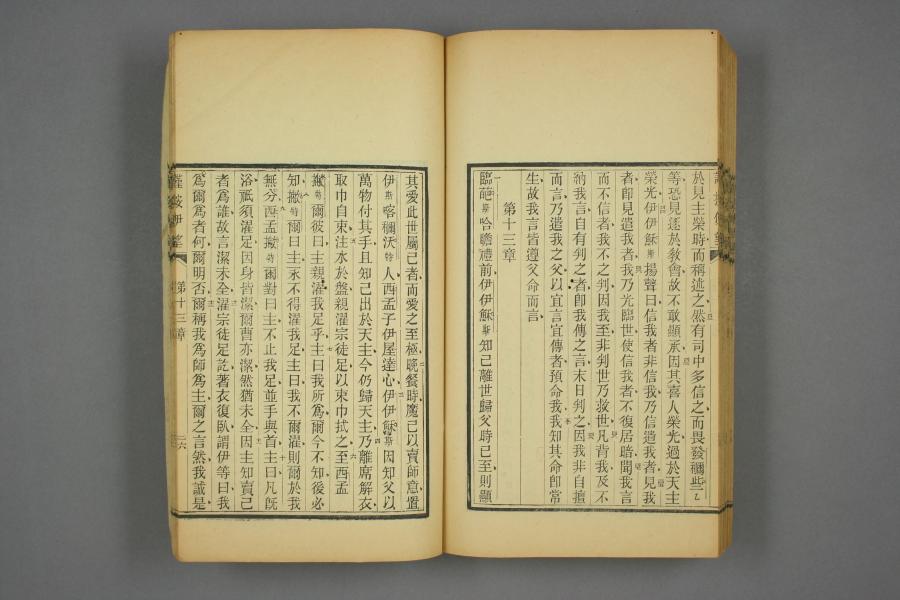 於見主榮時而稱述之然有司中多信之而畏發禰些乙
等恐見逐於教會故不敢顯承因其喜人榮光過於天主
榮光伊伊穌斯揚聲曰信我者非信我乃信遣我者見我
者卽見遣我者我乃光臨世使信我者不復居暗聞我言
而不信者我不之判因我至非判世乃救世凡背我及不
納我言自有判之者卽我傳之言末日判之因我非自擅
而言乃遣我之父以宜言宜傳者預命我我知其命卽常
生故我言皆遵父命而言
第十三章
臨葩斯哈瞻禮前伊伊穌斯知己離世歸父時已至則顯
其愛此世屬己者而愛之至極晚餐時魔已以賣師意置
伊斯喀禰沃特人西孟子伊屋達心伊伊穌斯因知父以
萬物付其手且知己出於天主今仍歸天主乃離席解衣
取巾自束注水於盤親濯宗徒足以束巾拭之至西孟
爾彼曰主親濯我足乎主曰我所爲爾今不知後必
知爾曰主永不得濯我足主曰我不爾濯則爾於我
無分西孟爾對曰主不止我足並手與首主曰凡旣
浴祇須濯足因身皆潔爾曹亦潔然猶未全因主知賣己
者爲誰故言潔未全濯宗徒足訖著衣復臥謂伊等曰我
爲爾爲者何爾明否爾稱我爲師爲主爾之言然我誠是
第十三章
二六